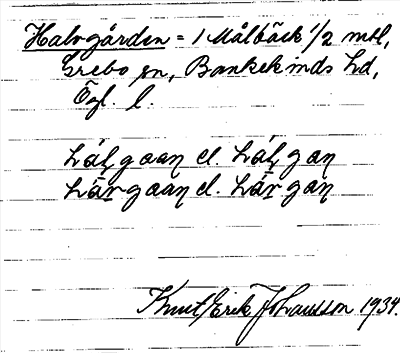 Halvgården = i Målbäck 1/2 mtl,
Grebo sn, Bankekinds hd,
Ögl. l.
hálgaaṇ el. hálgaṇ
hä́rgaaṇ el. hä́rgaṇ
Knut Erik Johansson 1934.